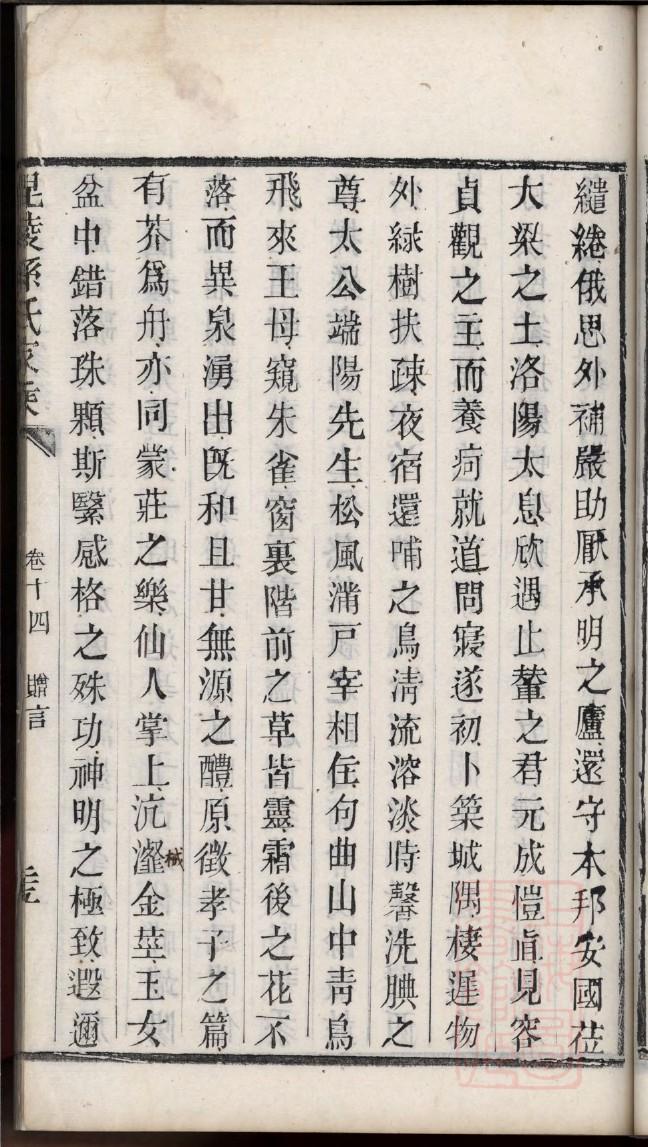 繾綣俄思外補嚴助厭承明之廬還守本邦安國莅
大梁之土洛陽太息欣遇止輦之君元成愷直見容
貞觀之主而養疴就道問寢遂初卜築城隅棲遲物
外綠樹扶疎夜宿還哺之鳥淸流溶淡時馨洗腆之
尊太公端陽先生松風滿戸宰相在句曲山中靑鳥
飛來王母窺朱雀窗裏階前之草皆靈霜後之花不
落而異泉湧出旣和且甘無源之醴原徵孝子之篇
有芥爲舟亦同蒙莊之樂仙人掌上沆瀣金莖玉女
盆中錯落珠顆斯繄感格之殊功神明之極致遐邇
毘陵孫氏家乘
卷十四 贈言